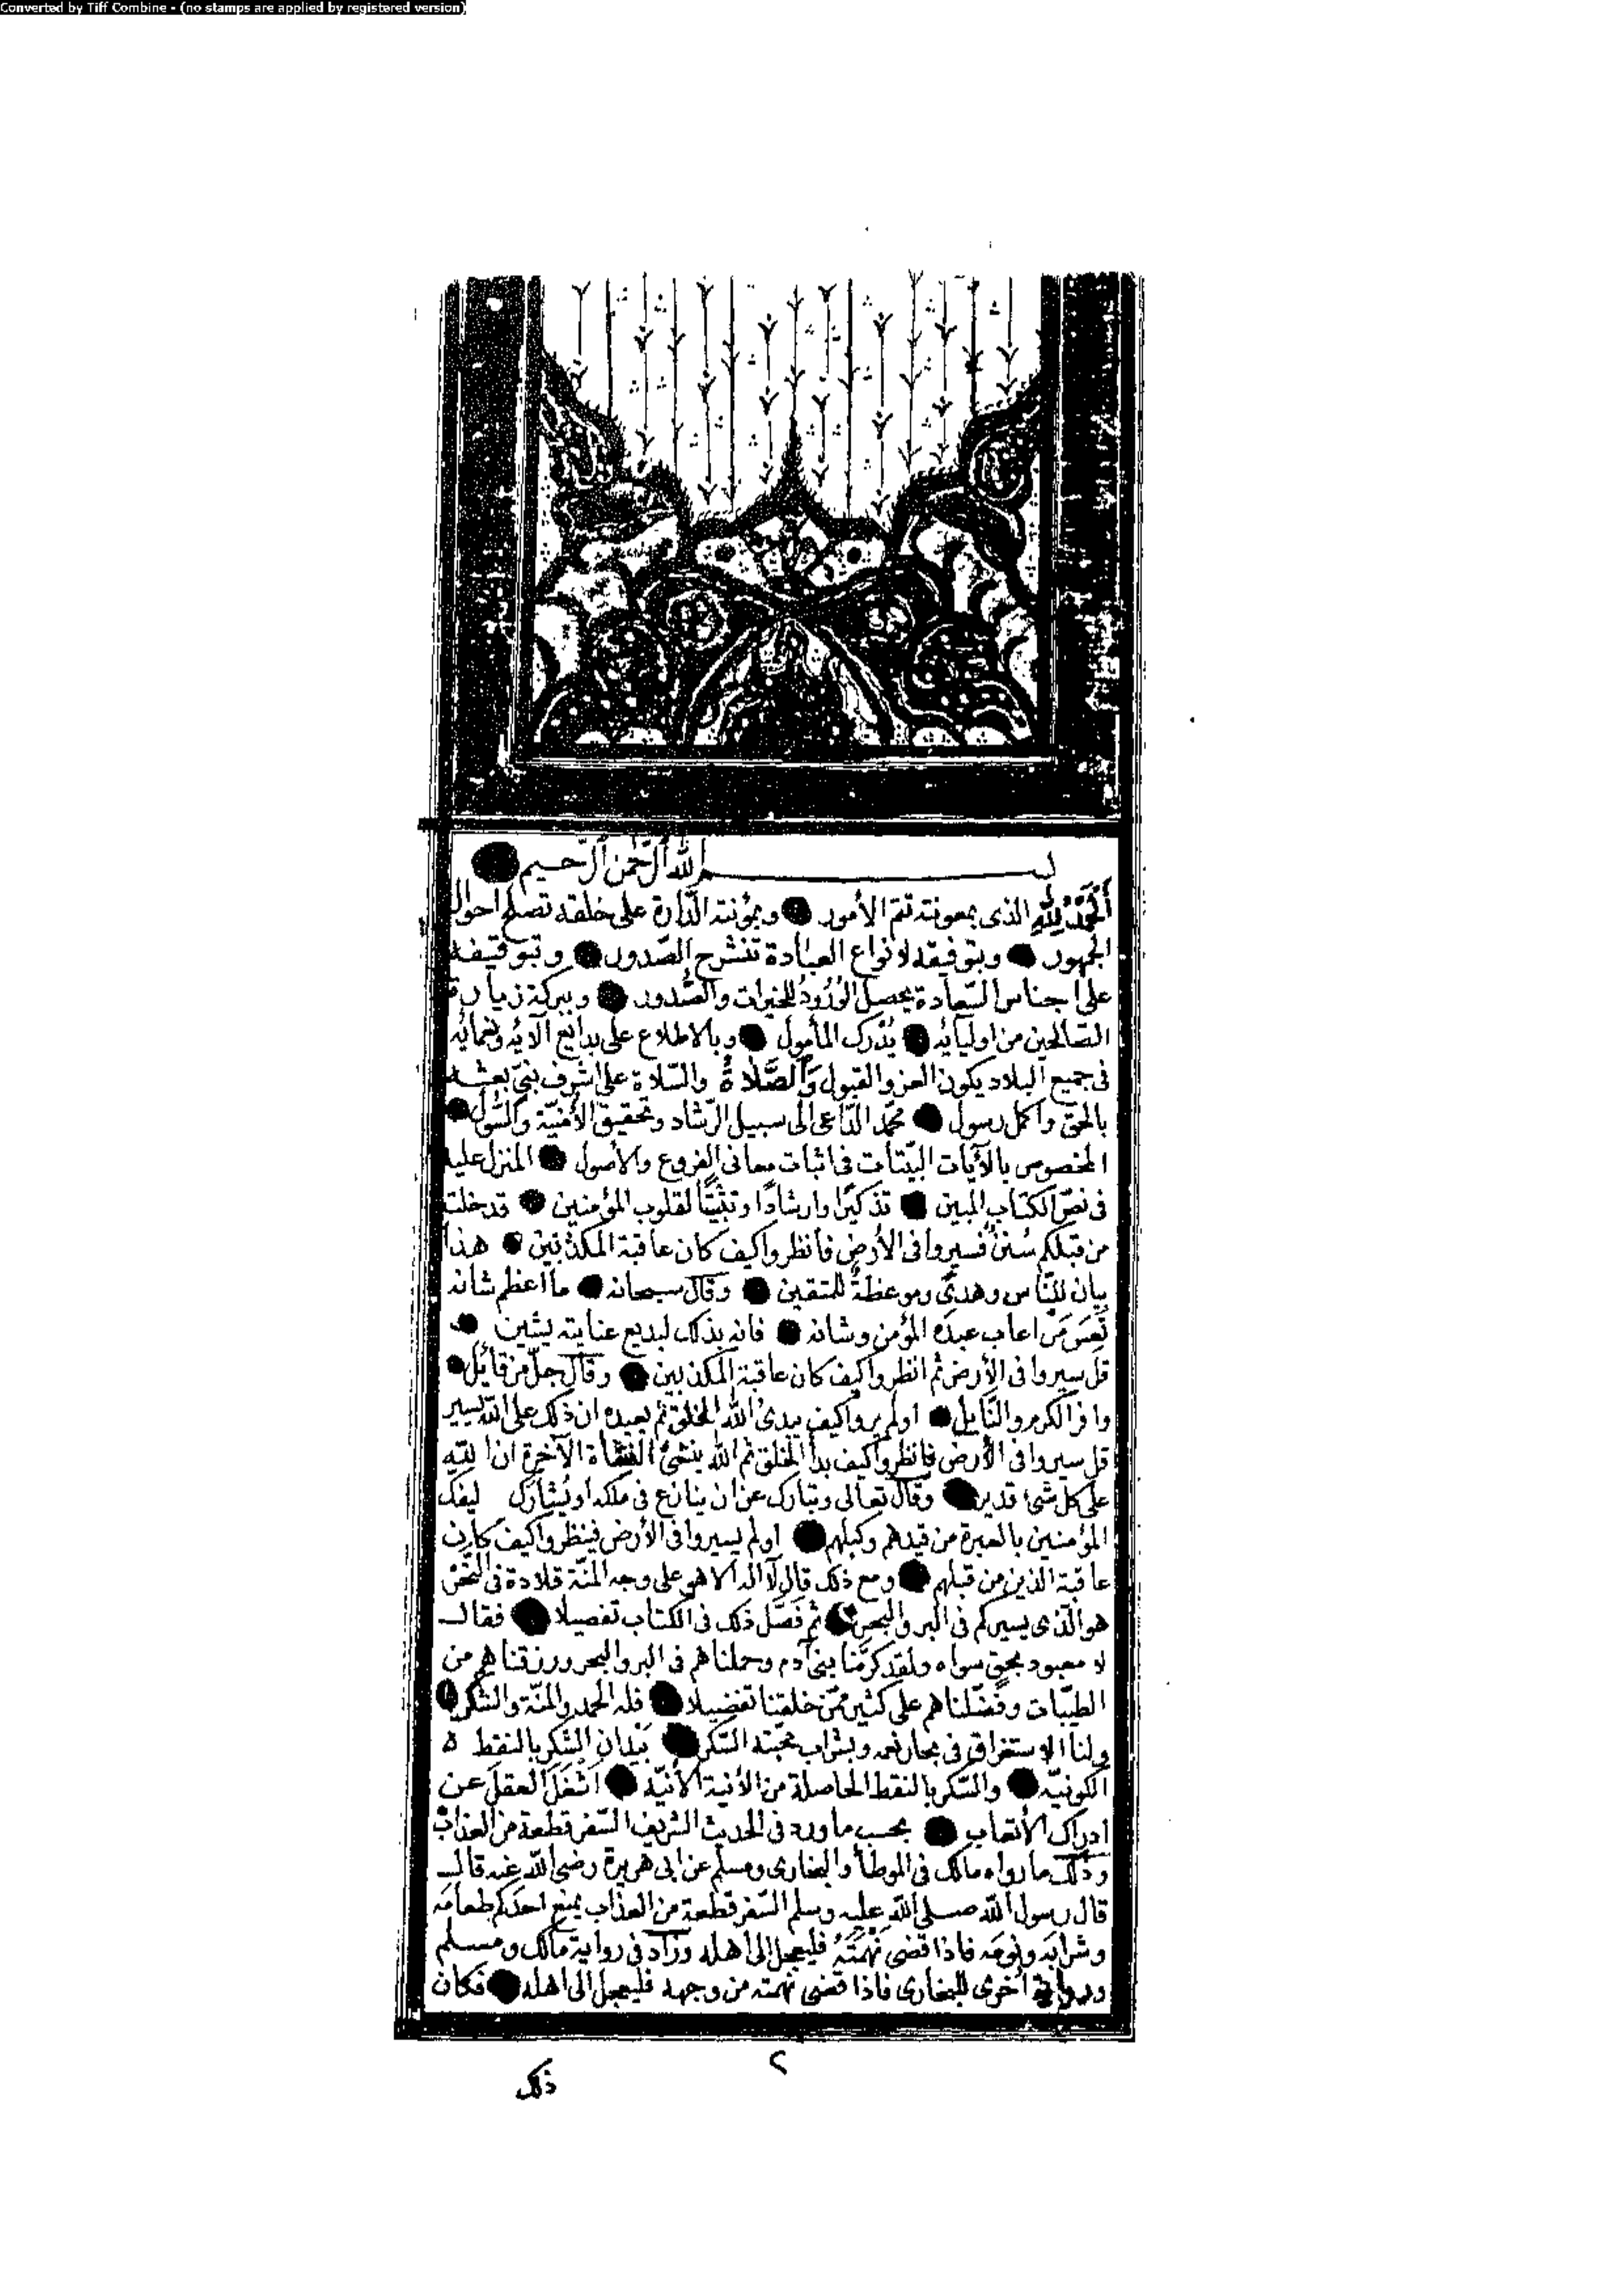 Converted by Tiff Combine - (no stamps are applied by registered version)
بسم الله الرحمن الرحيم
الحمد لله الذى بمعونته تتم الأمور وبمؤنته الدارة على خلقه تصلح احوال
الجمهور وبتوفيقه لانواع العبادة تنشرح الصدور وبتوقيفه
على اجناس السعادة يحصل الورود للخيرات والصدور وببركة زيارة
الصالحين من اوليآيه يدرك المأمول وبالاطلاع على بدايع آلآيه ونعمآيه
فى جميع البلاد يكون العز والقبول والصلاة والسلام على اشرف نبى بعثه
بالحق واكمل رسول محمد الداعى الى سبيل الرشاد وتحقيق الأمنية والسول
المخصوص بالآيات البينات فى اثبات معانى الفروع والأصول المنزل عليه
فى نص الكتاب المبين تذكيرًا وارشادًا وتثبيتًا لقلوب المؤمنين قد خلت
من قبلكم سُنن فسيروا فى الأرض فانظروا كيف كان عاقبة المكذبين هذا
بيان للناس وهدىً وموعظةٌ للمتقين وقال سبحانه ما اعظم شانه
تعس من اعاب عبده المؤمن وشانه فانه بذلك لبديع عنايته يشين
قل سيروا فى الأرض ثم انظروا كيف كان عاقبة المكذبين وقال جل من قائل
وافر الكرم والنايل اولم يروا كيف يبدئ الله الخلق ثم يعيده ان ذلك على الله يسير
قل سيروا فى الأرض فانظروا كيف بدأ الخلق ثم الله ينشئ النشاة الآخرة ان الله
على كل شئ قدير وقال تعالى وتبارك عن ان ينازع فى ملكه او يُشارك ليفك
المؤمنين بالعبرة من قيدهم وكبلهم اولم يسيروا فى الأرض فينظروا كيف كان
عاقبة الذين من قبلهم ومع ذلك قال لآ اله الا هو على وجه المنة قلادة فى النحر
هو الذى يسيركم فى البر والبحر ثم فصّل ذلك فى الكتاب تفصيلا فقال
لا معبود بحق سواه ولقد كرّمنا بنى آدم وحملناهم فى البر والبحر ورزقناهم من
الطيبات وفضّلناهم على كثير ممن خلقنا تفضيلا فله الحمد والمنة والشكر
ولنا الاستغراق فى بحار نعمه وبشراب محبته السكر بيد ان الشكر بالنقط
الكونيّه والسكر بالنقط الحاصلة من الأنية الأنيّه اشغل العقل عن
ادراك الأتعاب بحسب ما ورد فى الحديث الشريف السفر قطعة من العذاب
وذلك ما رواه مالك فى الموطأ والبخارى ومسلم عن ابى هريرة رضى الله عنه قال
قال رسول الله صلى الله عليه وسلم السفر قطعة من العذاب يمنع احدكم طعامه
وشرابه ونومه فاذا قضى نهمته فليعجل الى اهله وزاد فى رواية مالك ومسلم
ورواية اخرى للبخارى فاذا قضى نهمته من وجهه فليعجل الى اهله فكان
ذلك
٢